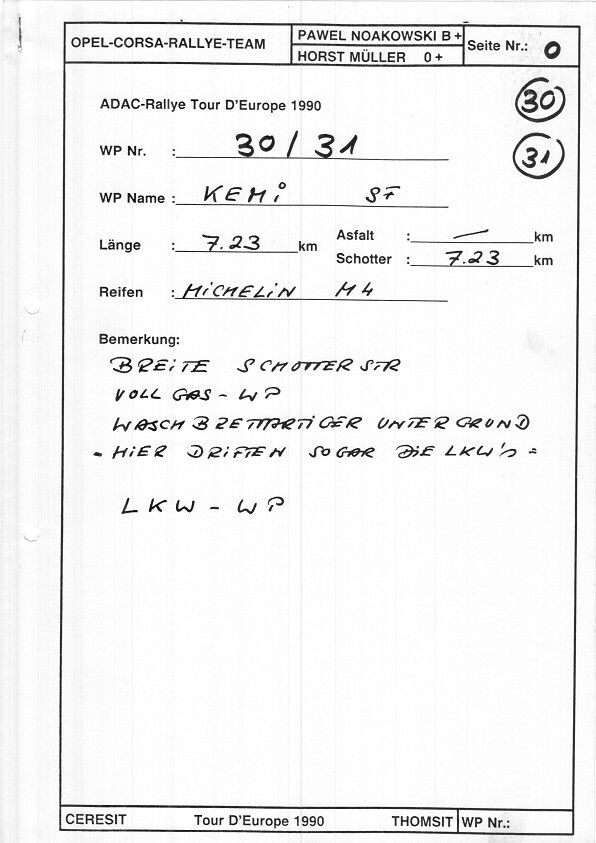 OPEL-CORSA-RALLYE-TEAM
PAWEL NOAKOWSKI B +
HORST MÜLLER 0 +
Seite Nr.: 0
ADAC-Rallye Tour D'Europe 1990
30
WP Nr. : 30 / 31
31
WP Name : KEMi SF
Länge : 7.23 km
Asfalt : — km
Schotter : 7.23 km
Reifen : MiCHELiN M4
Bemerkung:
BREiTE SCHOTTER STR
VOLL GAS - WP
WASCHBRETTARTiGER UNTERGRUND
- HiER DRiFTEN SOGAR DiE LKW's -
LKW - WP
CERESIT Tour D'Europe 1990 THOMSIT WP Nr.: